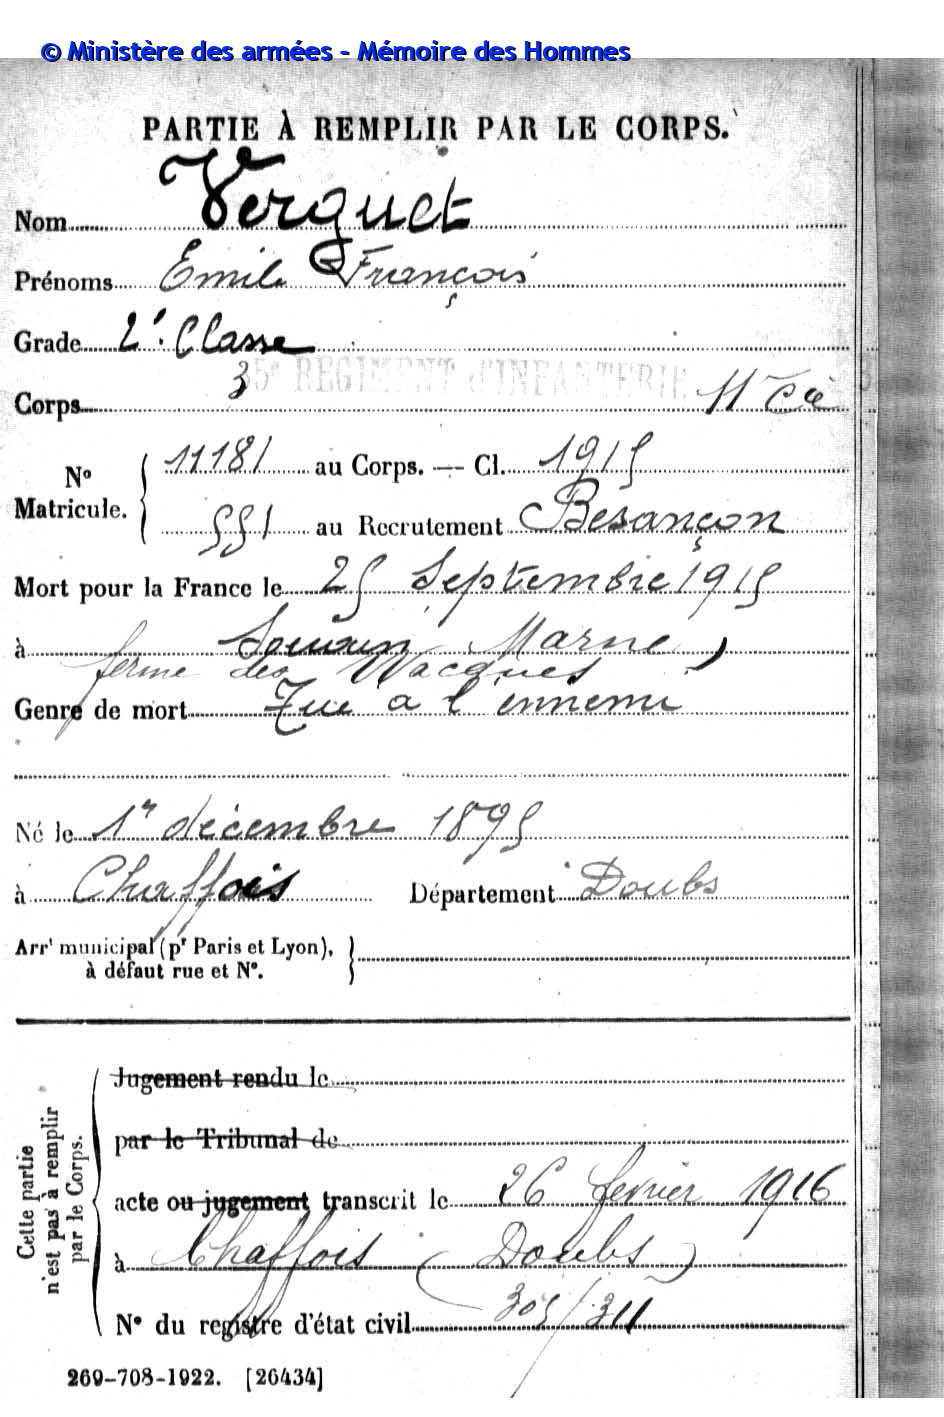 © Ministère des armées - Mémoire des Hommes
PARTIE À REMPLIR PAR LE CORPS.
Nom Verguet
Prénoms Emile François
Grade 2e Classe
35e REGIMENT d'INFANTERIE
Corps 11e Cie
No Matricule. 11181 au Corps. — Cl. 1915
551 au Recrutement Besançon
Mort pour la France le 25 Septembre 1915
à Souain Marne
ferme des Wacques
Genre de mort Tué a l'ennemi
Né le 1er décembre 1895
à Chaffois Département Doubs
Arrt municipal (pr Paris et Lyon),
à défaut rue et No.
Cette partie
n'est pas à remplir
par le Corps.
Jugement rendu le
par le Tribunal de
acte ou jugement transcrit le 26 fevrier 1916
à Chaffois (Doubs)
No du registre d'état civil 305/311
269-708-1922. [26434]